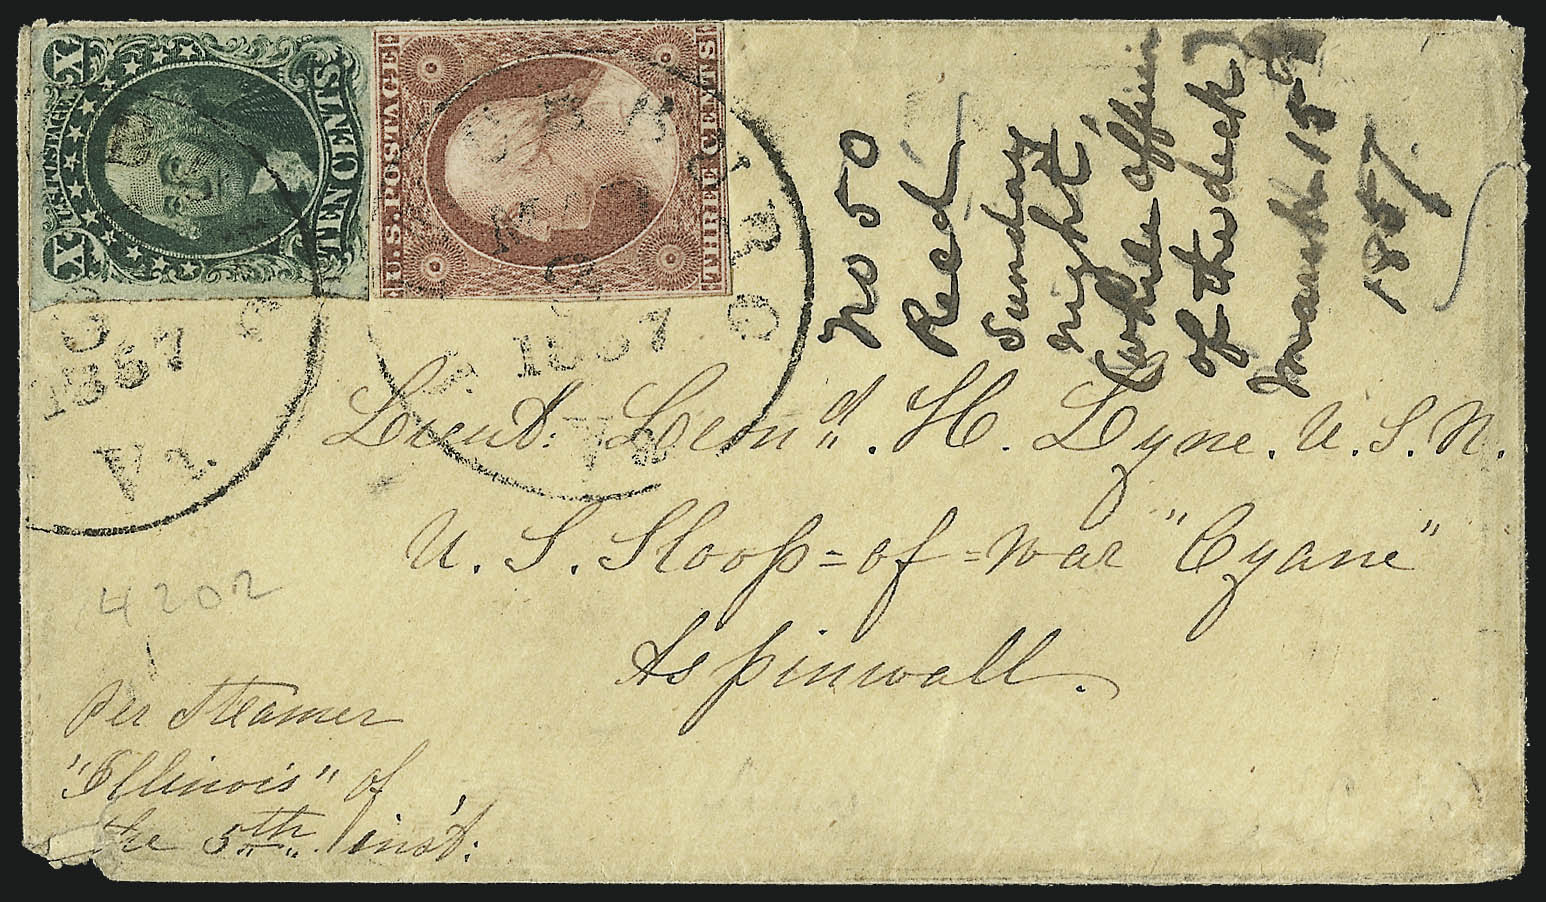 X
U.S. POSTAGE
TEN CENTS.
X
U.S. POSTAGE
THREE CENTS
1857
Va.
1857
Va
No 50
Recd.
Sunday
night
(while officer
of the deck)
March 15th
1857.
Lieut. Leond. H. Lyne. U. S. N.
U. S. Sloop=of=War "Cyane"
Aspinwall.
4202
Per Steamer
"Illinois" of
the 5th inst.